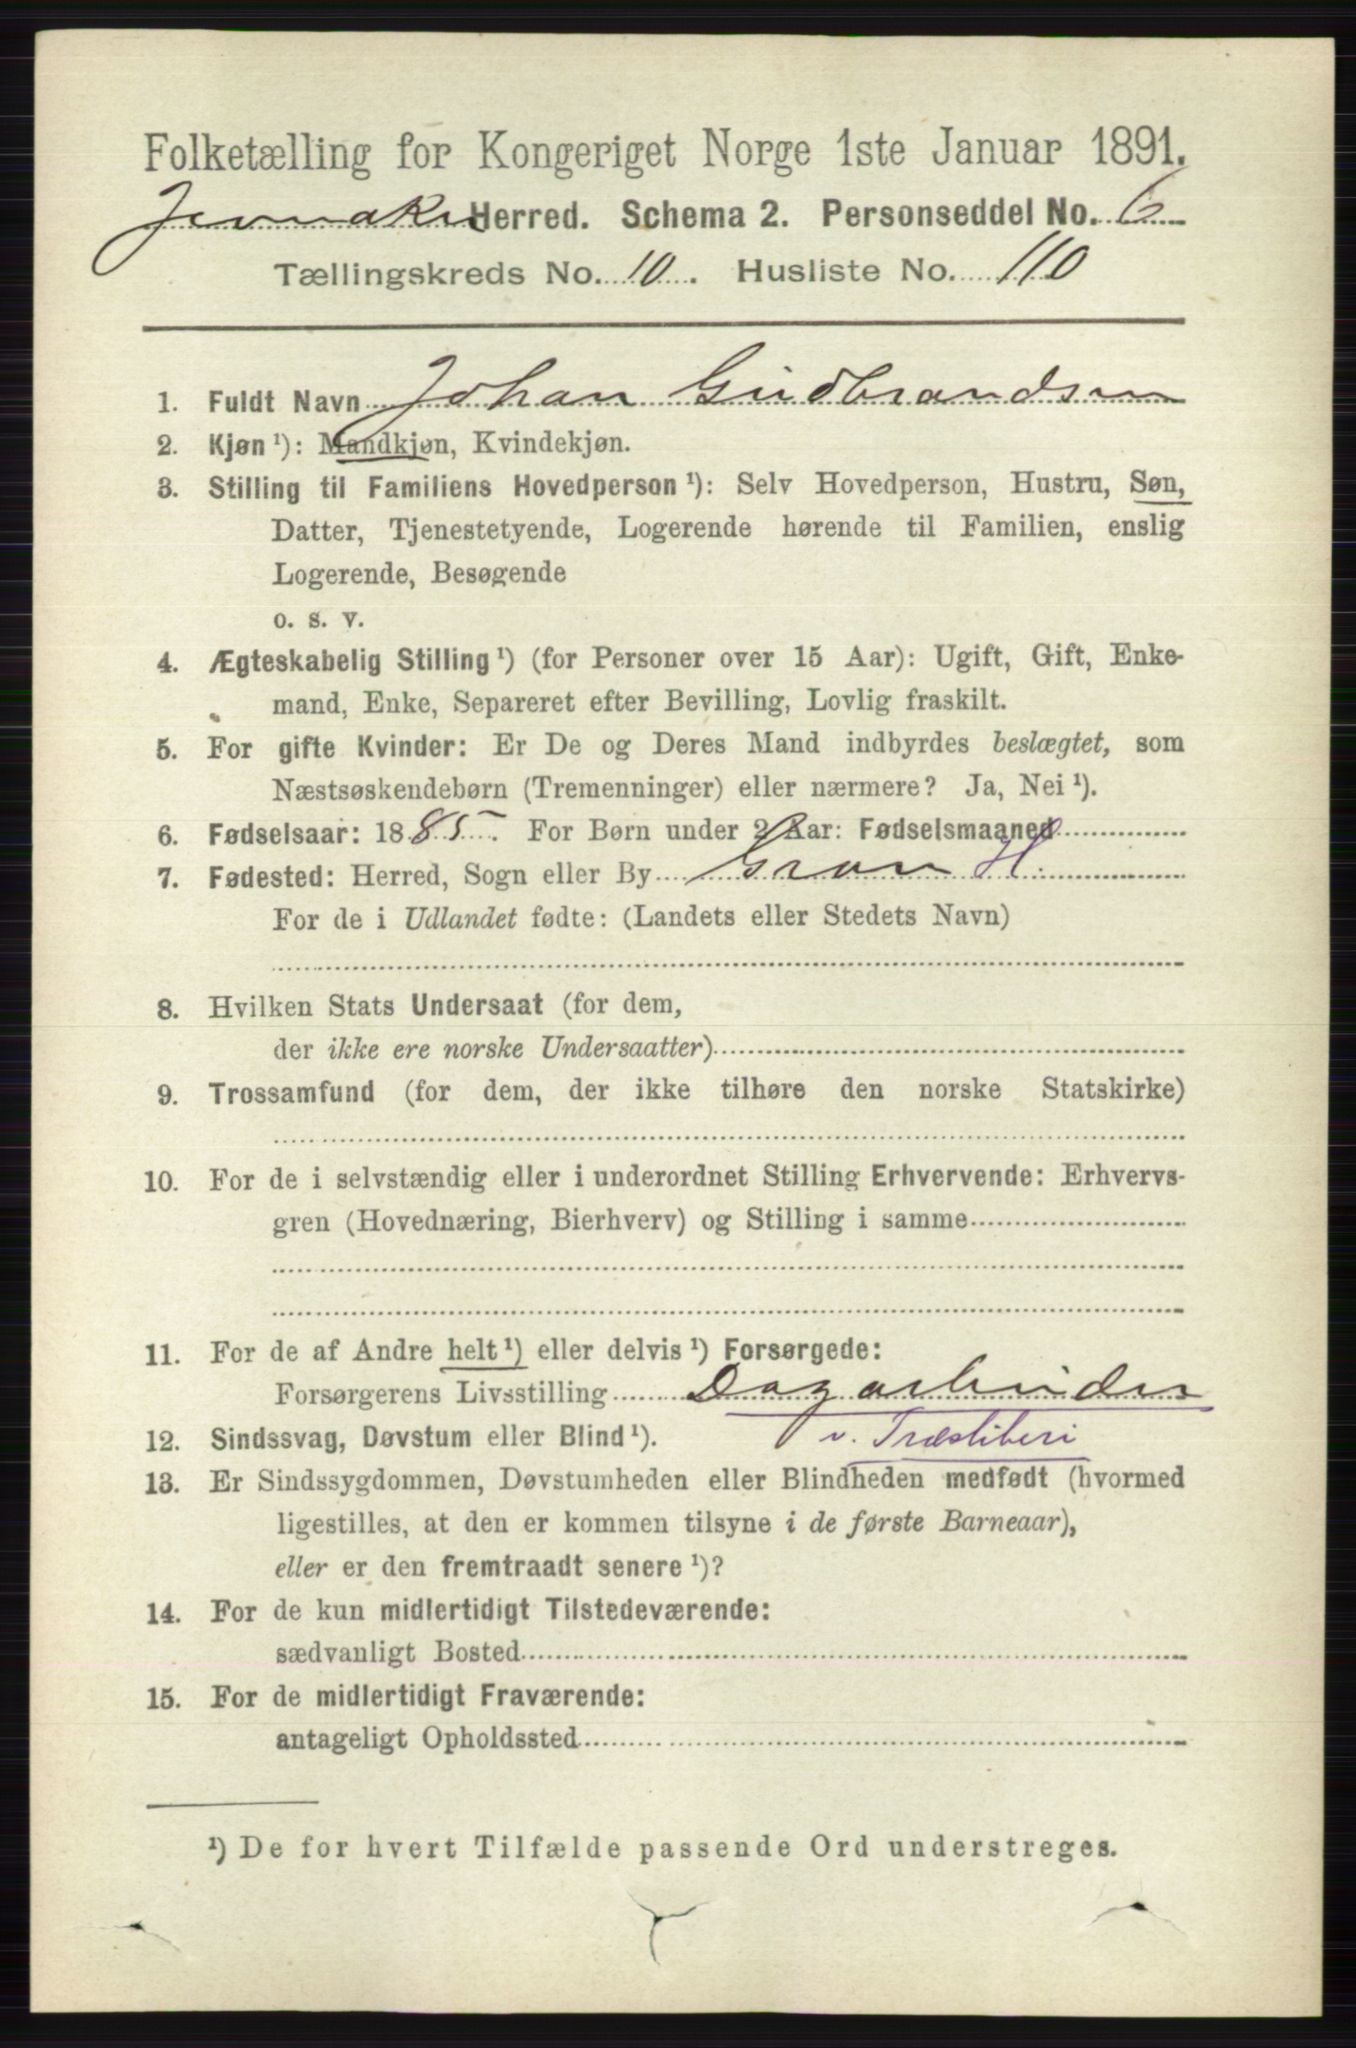 Folketælling for Kongeriget Norge 1ste Januar 1891.
Jevnaker Herred. Schema 2. Personseddel No. 6
Tællingskreds No. 10. Husliste No. 110
1. Fuldt Navn Johan Gudbrandsen
2. Kjøn ¹): Mandkjøn, Kvindekjøn.
3. Stilling til Familiens Hovedperson ¹): Selv Hovedperson, Hustru, Søn,
Datter, Tjenestetyende, Logerende hørende til Familien, enslig
Logerende, Besøgende
o. s. v.
4. Ægteskabelig Stilling ¹) (for Personer over 15 Aar): Ugift, Gift, Enke-
mand, Enke, Separeret efter Bevilling, Lovlig fraskilt.
5. For gifte Kvinder: Er De og Deres Mand indbyrdes beslægtet, som
Næstsøskendebørn (Tremenninger) eller nærmere? Ja, Nei ¹).
6. Fødselsaar: 1885. For Børn under 2 Aar: Fødselsmaaned
7. Fødested: Herred, Sogn eller By Gran H.
For de i Udlandet fødte: (Landets eller Stedets Navn)
8. Hvilken Stats Undersaat (for dem,
der ikke ere norske Undersaatter)
9. Trossamfund (for dem, der ikke tilhøre den norske Statskirke)
10. For de i selvstændig eller i underordnet Stilling Erhvervende: Erhvervs-
gren (Hovednæring, Bierhverv) og Stilling i samme
11. For de af Andre helt ¹) eller delvis ¹) Forsørgede:
Forsørgerens Livsstilling Dagarbeider
v. Træsliberi
12. Sindssvag, Døvstum eller Blind ¹).
13. Er Sindssygdommen, Døvstumheden eller Blindheden medfødt (hvormed
ligestilles, at den er kommen tilsyne i de første Barneaar),
eller er den fremtraadt senere ¹)?
14. For de kun midlertidigt Tilstedeværende:
sædvanligt Bosted
15. For de midlertidigt Fraværende:
antageligt Opholdssted
¹) De for hvert Tilfælde passende Ord understreges.